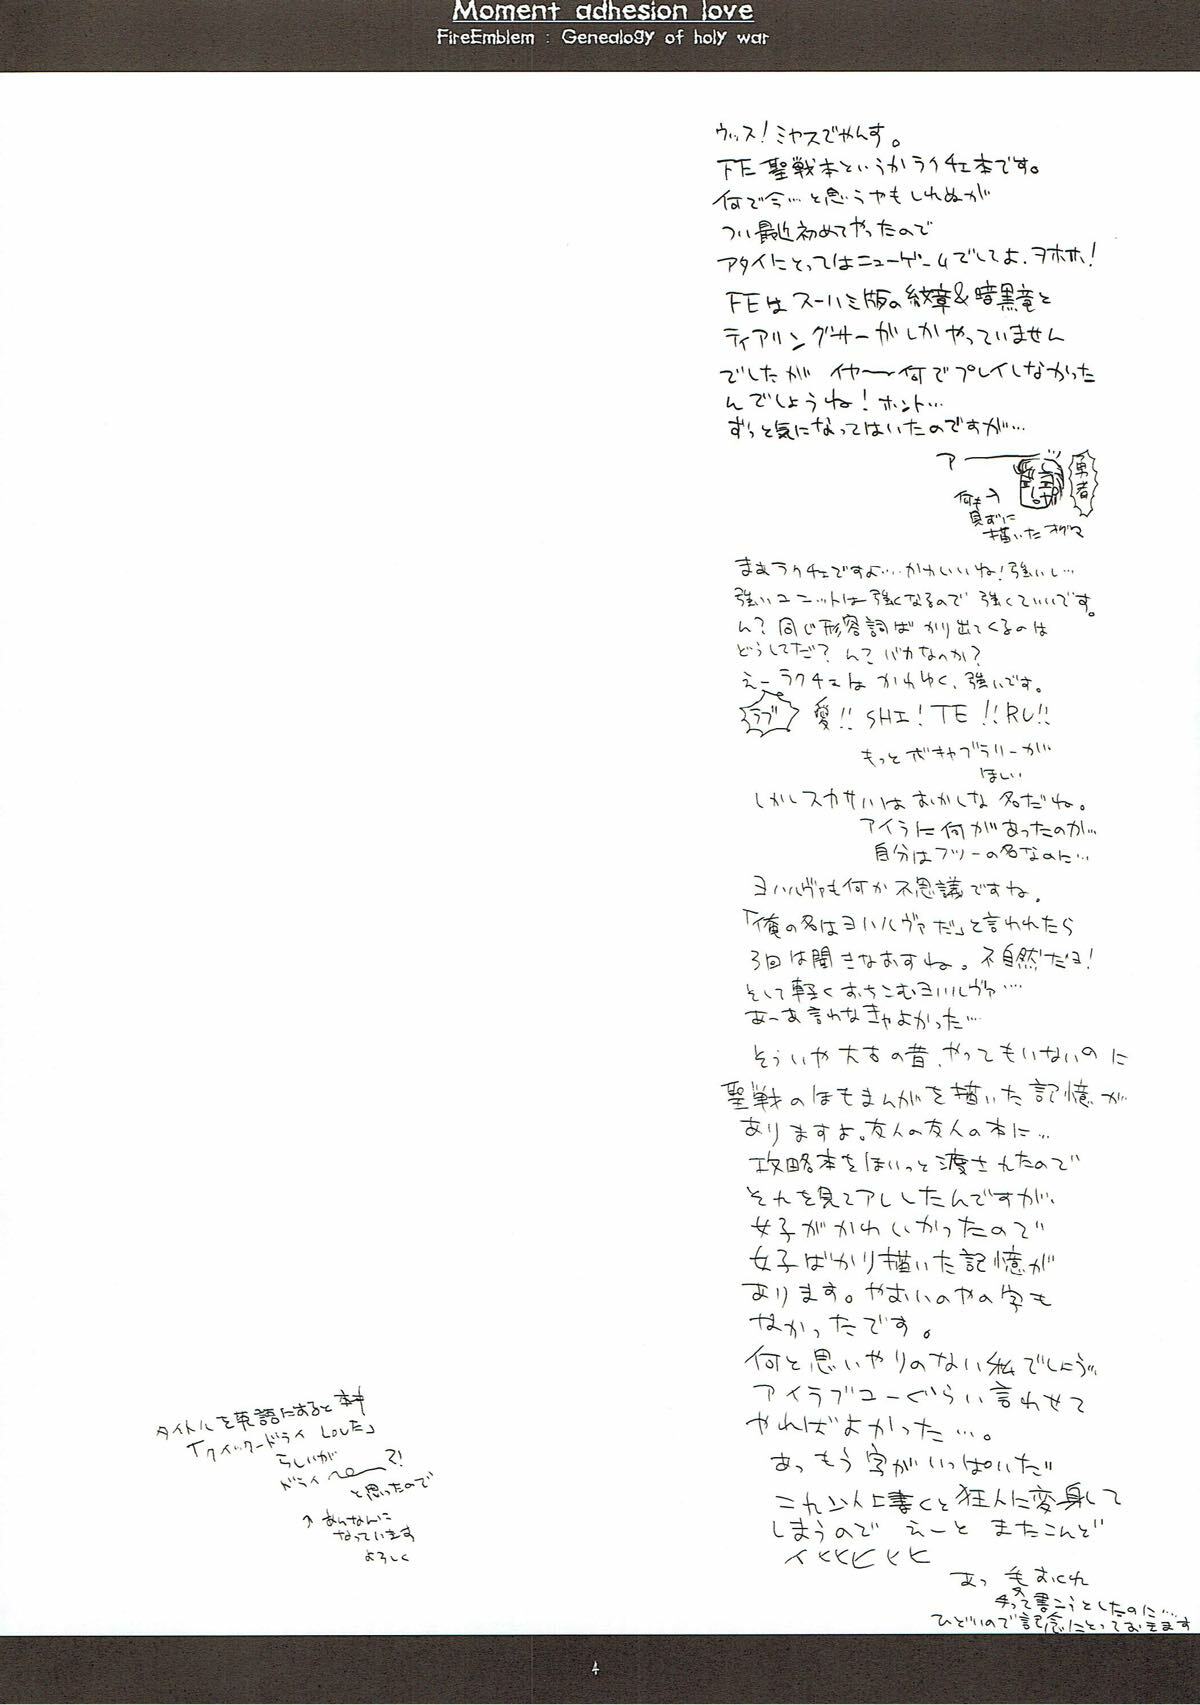 Moment adhesion love
FireEmblem : Genealogy of holy war
ウィッス!ミヤスでやんす。
FE聖戦本というかラクチェ本です。
何で今…と思うやもしれぬが
つい最近初めてやったので
アタイにとってはニューゲームでしてよ、ヲホホ!
FEはスーハミ版の紋章&暗黒竜と
ティアリングサーガしかやっていません
でしたが イヤ〜何でプレイしなかった
んでしょうね!ホント…
ずっと気になってはいたのですが…
アー
勇者
何も→
見ずに
描いたオグマ
まぁラクチェですよ…かわいいね!強いし…
強いユニットは強くなるので強くていいです。
ん?同じ形容詞ばかり出てくるのは
どうしてだ?ん?バカなのか?
えーラクチェはかわゆく、強いです。
ラブ
愛!!SHI!TE!!RU!!
もっとボキャブラリーが
ほしい
しかしスカサハはおかしな名だね。
アイラに何があったのか…
自分はフツーの名なのに…
ヨハルヴァも何か不思議ですね。
「俺の名はヨハルヴァだ」と言われたら
3回は聞きなおすね。不自然だヨ!
そして軽くおちこむヨハルヴァ…
あーあ言わなきゃよかった…
そういや大古の昔、やってもいないのに
聖戦のほもまんがを描いた記憶が
ありますよ。友人の友人の本に…
攻略本をほいっと渡されたので
それを見てアレしたんですが、
女子がかわいかったので
女子ばかり描いた記憶が
あります。やおいのやの字も
なかったです。
何と思いやりのない私でしょう…
アイラブユーぐらい言わせて
やればよかった…。
あっもう字がいっぱいだ
これ以上書くと狂人に変身して
しまうので えーと またこんど
イヒヒヒヒヒ
あっ 愛おくれ
って書こうとしたのに…
ひどいので記念にとっておきます
タイトルを英語にすると本当
「クイックードライ Loveだ」
らしいが
ドライ〜?!
と思ったので
↑あんなんに
なっています
よろしく
4